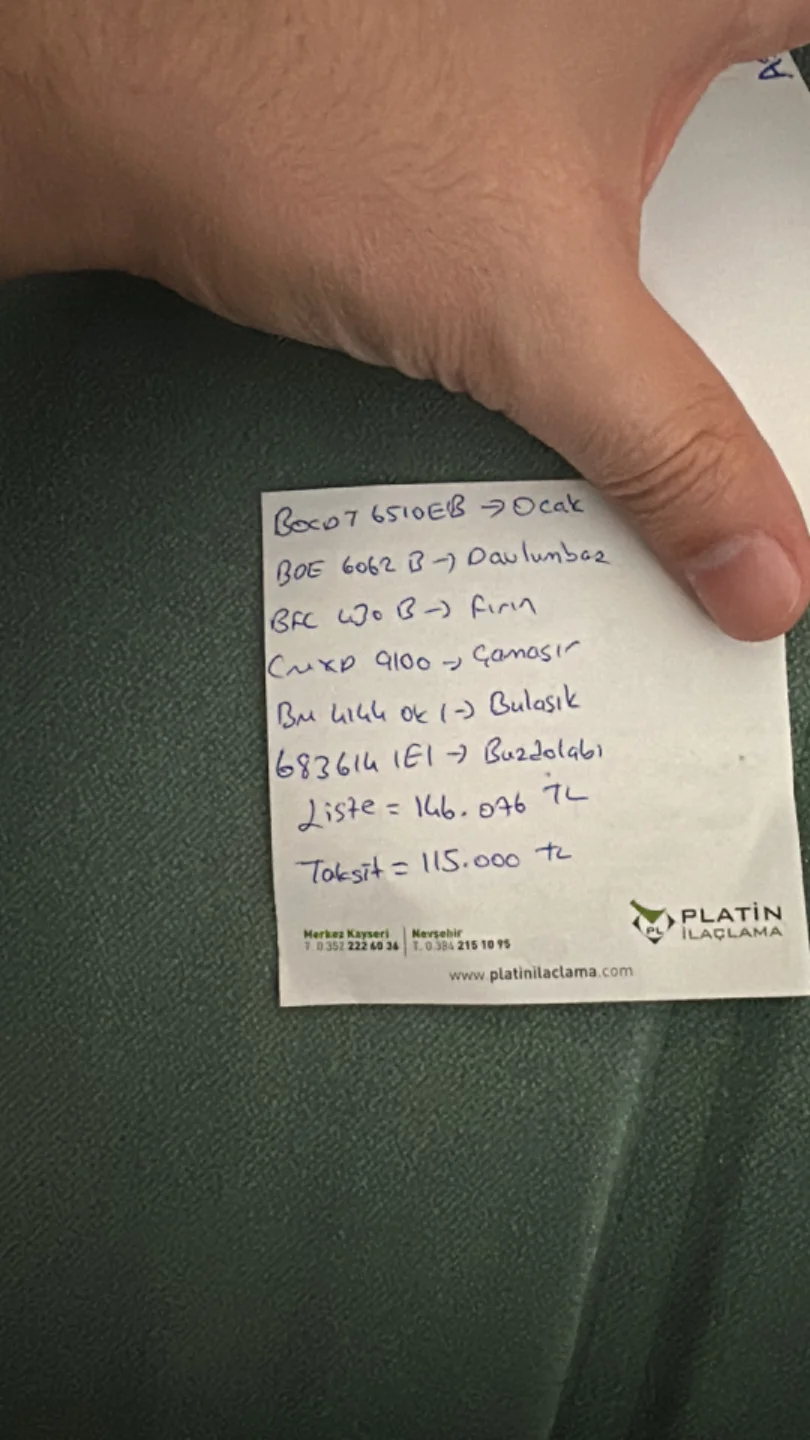 BOCD7 6510EB → Ocak
BOE 6062 B → Davlumbaz
BFC 430 B → fırın
CMXD 9100 → Çamaşır
BM 4144 OK 1 → Bulaşık
683614 1E1 → Buzdolabı
Liste = 146.076 TL
Taksit = 115.000 TL
PLATİN
İLAÇLAMA
Merkez Kayseri
T. 0.352 222 60 36
Nevşehir
T. 0.384 215 10 95
www.platinilaclama.com